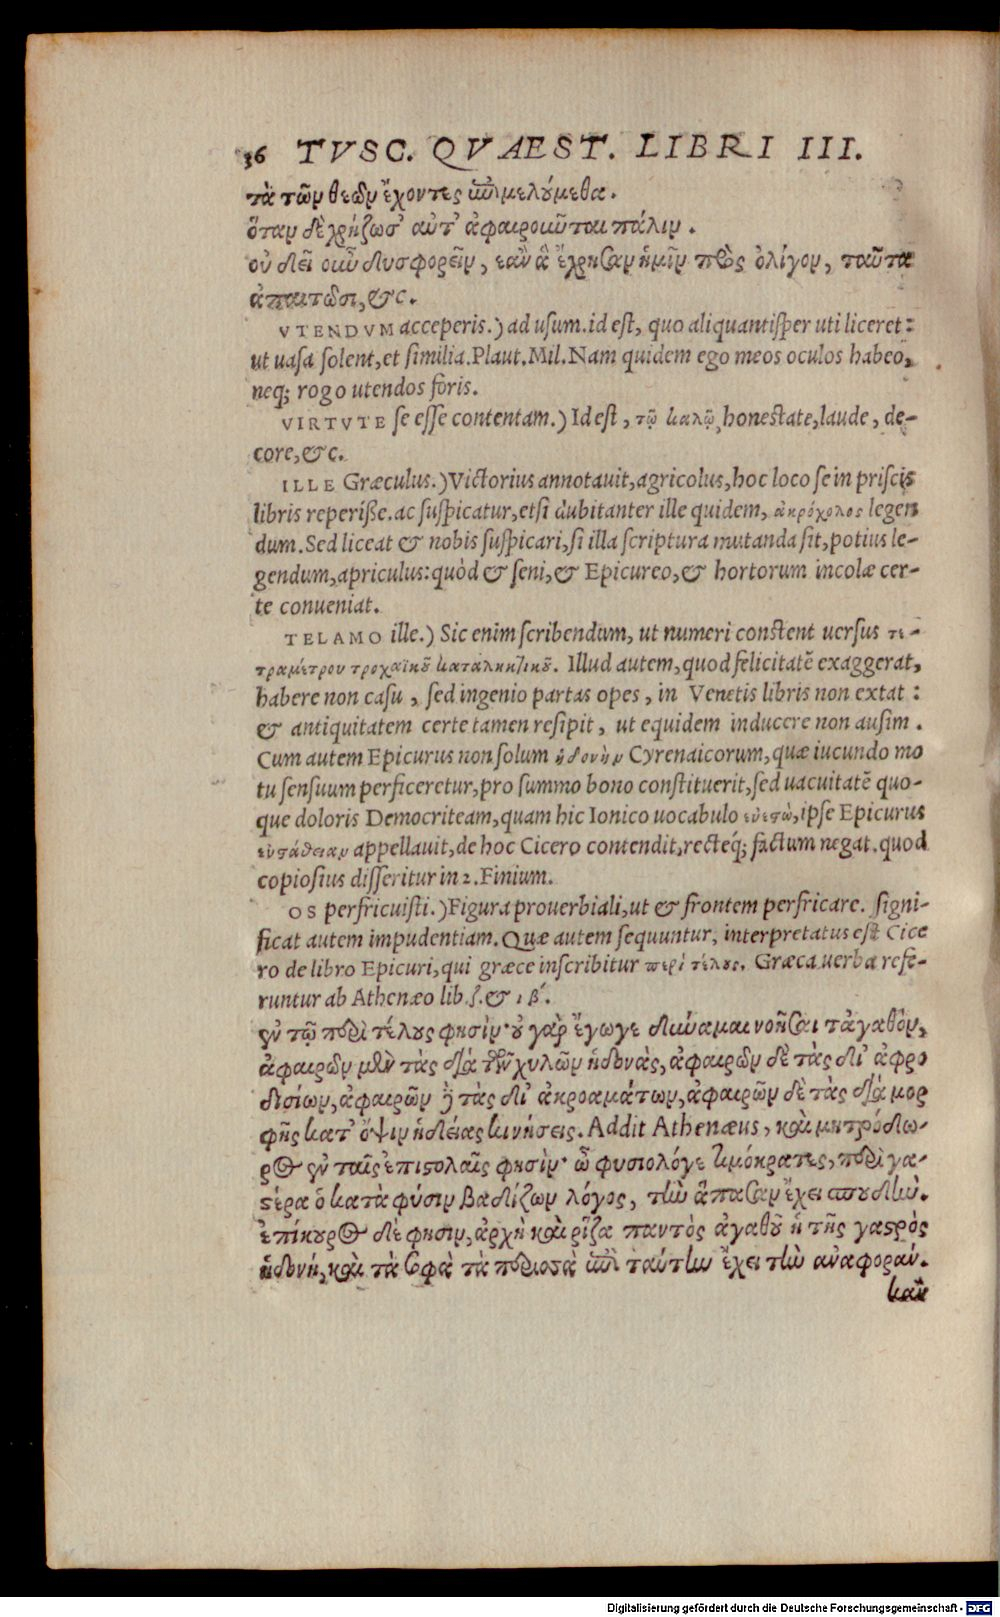 36 TVSC. QVAEST. LIBRI III.
τὰ τῶν θεῶν ἔχοντες ἐπιμελούμεθα.
ὅταν δὲ χρῄζωσ' αὔτ' ἀφαιροῦνται πάλιν.
οὐ δεῖ οὖν δυσφορεῖν, ἐὰν ἃ ἔχρησαν ἡμῖν πρὸς ὀλίγον, ταῦτα
ἀπαιτῶσι, &c.
VTENDVM acceperis.) ad usum. id est, quo aliquantisper uti liceret:
ut uasa solent, et similia. Plaut. Mil. Nam quidem ego meos oculos habeo,
neq; rogo utendos foris.
VIRTVTE se esse contentam.) Id est, τῷ καλῷ, honestate, laude, de-
core, &c.
ILLE Græculus.) Victorius annotauit, agricolus, hoc loco se in priscis
libris reperiße. ac suspicatur, etsi dubitanter ille quidem, ἀκρόχολος legen
dum. Sed liceat & nobis suspicari, si illa scriptura mutanda sit, potius le-
gendum, apriculus: quòd & seni, & Epicureo, & hortorum incolæ cer-
te conueniat.
TELAMO ille.) Sic enim scribendum, ut numeri constent uersus τε-
τραμέτρου τροχαϊκοῦ καταληκτικοῦ. Illud autem, quod felicitatē exaggerat,
habere non casu, sed ingenio partas opes, in Venetis libris non extat:
& antiquitatem certe tamen resipit, ut equidem inducere non ausim.
Cum autem Epicurus non solum ἡδονὴν Cyrenaicorum, quæ iucundo mo
tu sensuum perficeretur, pro summo bono constituerit, sed uacuitatē quo-
que doloris Democriteam, quam hic Ionico uocabulo εὐεστὼ, ipse Epicurus
εὐστάθειαν appellauit, de hoc Cicero contendit, recteq́; factum negat. quod
copiosius disseritur in 2. Finium.
OS perfricuisti.) Figura prouerbiali, ut & frontem perfricare. signi-
ficat autem impudentiam. Quæ autem sequuntur, interpretatus est Cice
ro de libro Epicuri, qui græce inscribitur περὶ τέλους. Græca uerba refe-
runtur ab Athenæo lib. ζ. & ιβ'.
ἐν τῷ περὶ τέλους φησίν· οὐ γὰρ ἔγωγε δύναμαι νοῆσαι τἀγαθὸν,
ἀφαιρῶν μὲν τὰς διὰ τῶν χυλῶν ἡδονὰς, ἀφαιρῶν δὲ τὰς δι' ἀφρο
δισίων, ἀφαιρῶν δὲ τὰς δι' ἀκροαμάτων, ἀφαιρῶν δὲ τὰς διὰ μορ
φῆς κατ' ὄψιν ἡδείας κινήσεις. Addit Athenæus, καὶ μητρόδω-
ρος ἐν ταῖς ἐπιστολαῖς φησίν· ὦ φυσιολόγε τιμόκρατες, περὶ γα-
στέρα ὁ κατὰ φύσιν βαδίζων λόγος, τὴν ἅπασαν ἔχει σπουδήν.
ἐπίκουρος δέ φησιν, ἀρχὴ καὶ ῥίζα παντὸς ἀγαθοῦ ἡ τῆς γαστρὸς
ἡδονή, καὶ τὰ σοφὰ τὰ περισσὰ ἐπὶ ταύτην ἔχει τὴν ἀναφοράν.
κἀν
Digitalisierung gefördert durch die Deutsche Forschungsgemeinschaft - DFG